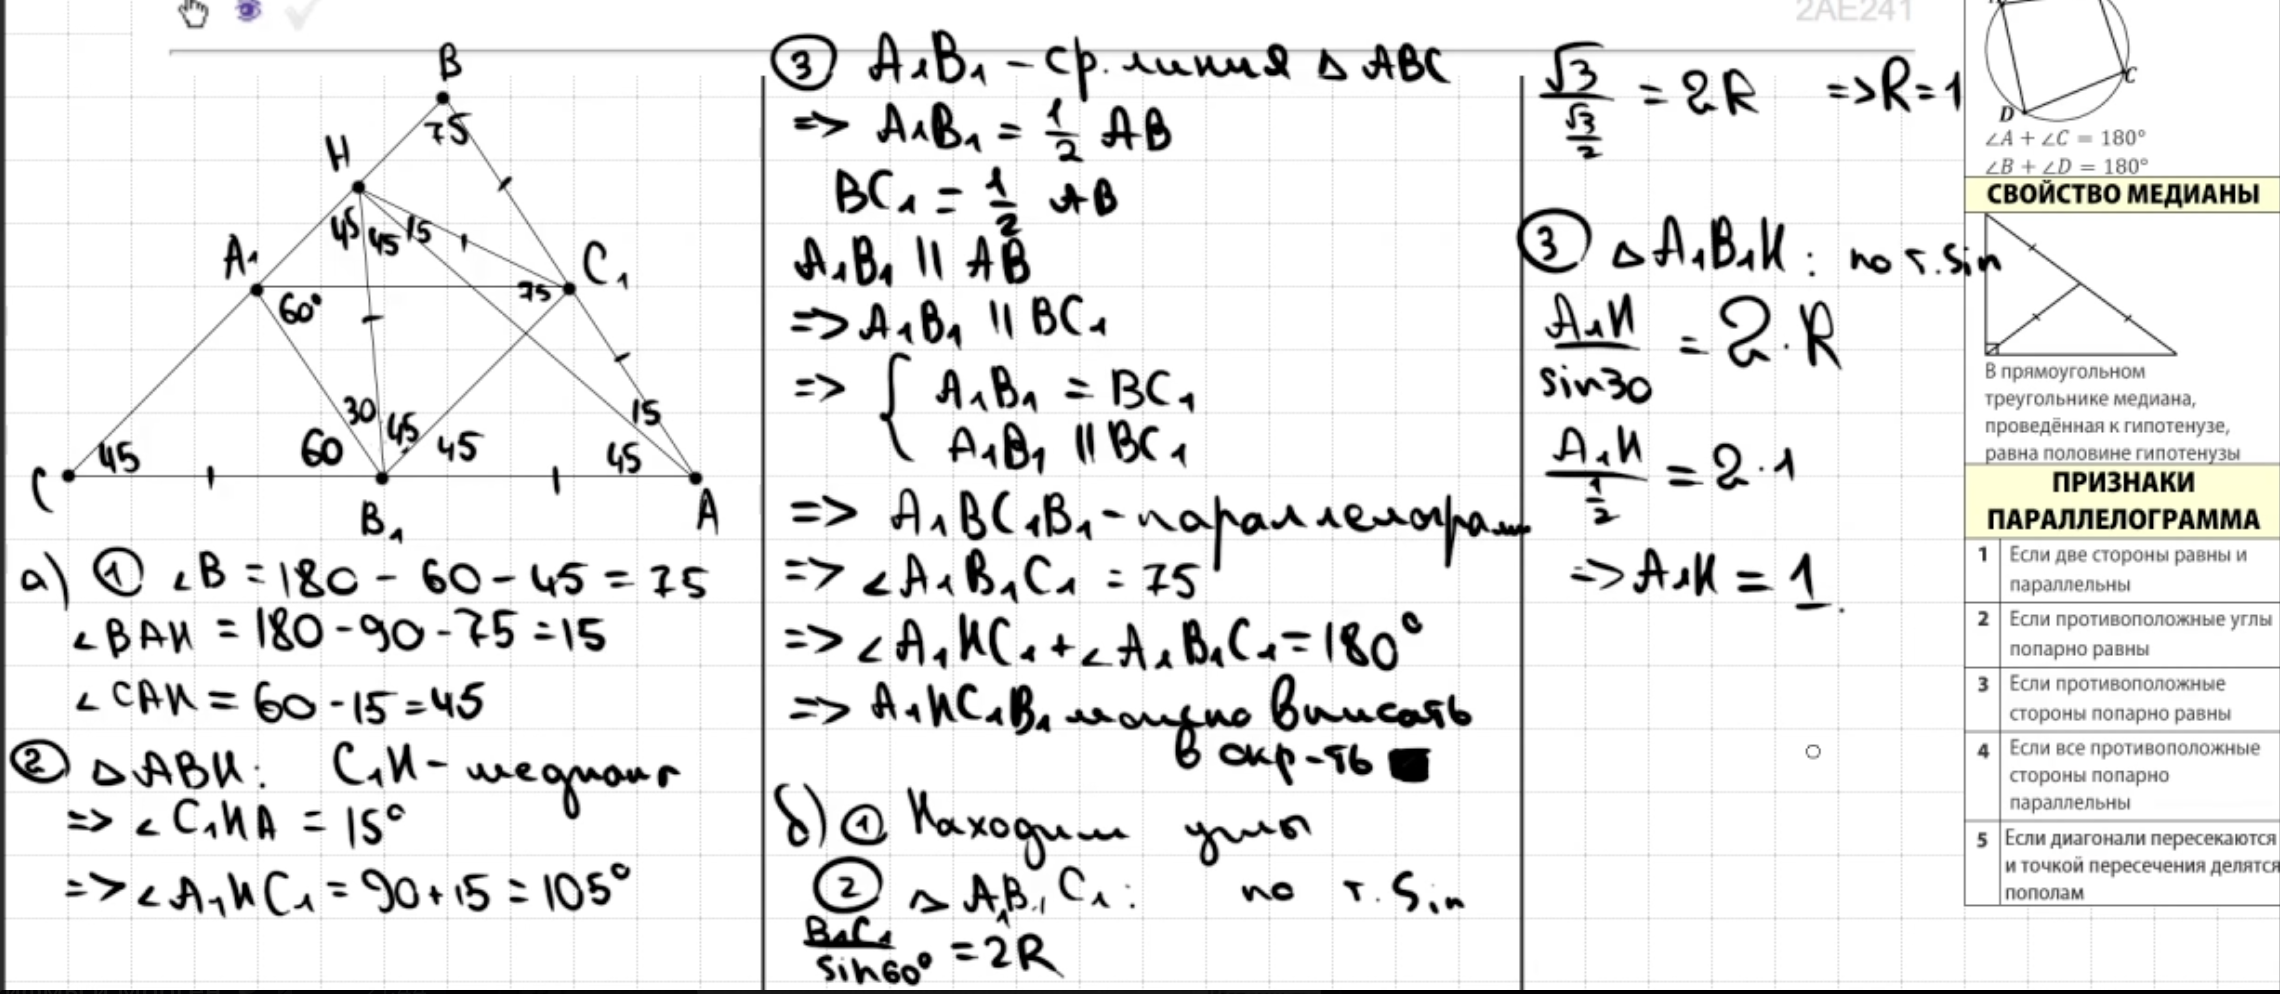 2AE241
B
75
H
45 45 15
A₁
C₁
60°
75
30
15
45
60 45 45 45
C
B₁
A
а) ① ∠B = 180 - 60 - 45 = 75
∠BAH = 180-90-75=15
∠CAH = 60-15=45
② △ABH: C₁H - медиана
=> ∠C₁HA = 15°
=> ∠A₁HC₁ = 90+15 = 105°
③ A₁B₁ - ср. линия △ABC
=> A₁B₁ = 1/2 AB
BC₁ = 1/2 AB
A₁B₁ || AB
=> A₁B₁ || BC₁
=> { A₁B₁ = BC₁
A₁B₁ || BC₁
=> A₁BC₁B₁ - параллелограмм
=> ∠A₁B₁C₁ = 75
=> ∠A₁HC₁ + ∠A₁B₁C₁ = 180°
=> A₁HC₁B₁ можно вписать
в окр-ть ■
б) ① Находим углы
② △A₁B₁C₁: по т. sin
B₁C₁/sin60° = 2R
√3/(√3/2) = 2R => R=1
③ △A₁B₁H: по т. sin
A₁H/sin30 = 2·R
A₁H/(1/2) = 2·1
=> A₁H = 1.
C
D
∠A + ∠C = 180°
∠B + ∠D = 180°
СВОЙСТВО МЕДИАНЫ
В прямоугольном
треугольнике медиана,
проведённая к гипотенузе,
равна половине гипотенузы
ПРИЗНАКИ
ПАРАЛЛЕЛОГРАММА
1 Если две стороны равны и
параллельны
2 Если противоположные углы
попарно равны
3 Если противоположные
стороны попарно равны
4 Если все противоположные
стороны попарно
параллельны
5 Если диагонали пересекаются
и точкой пересечения делятся
пополам